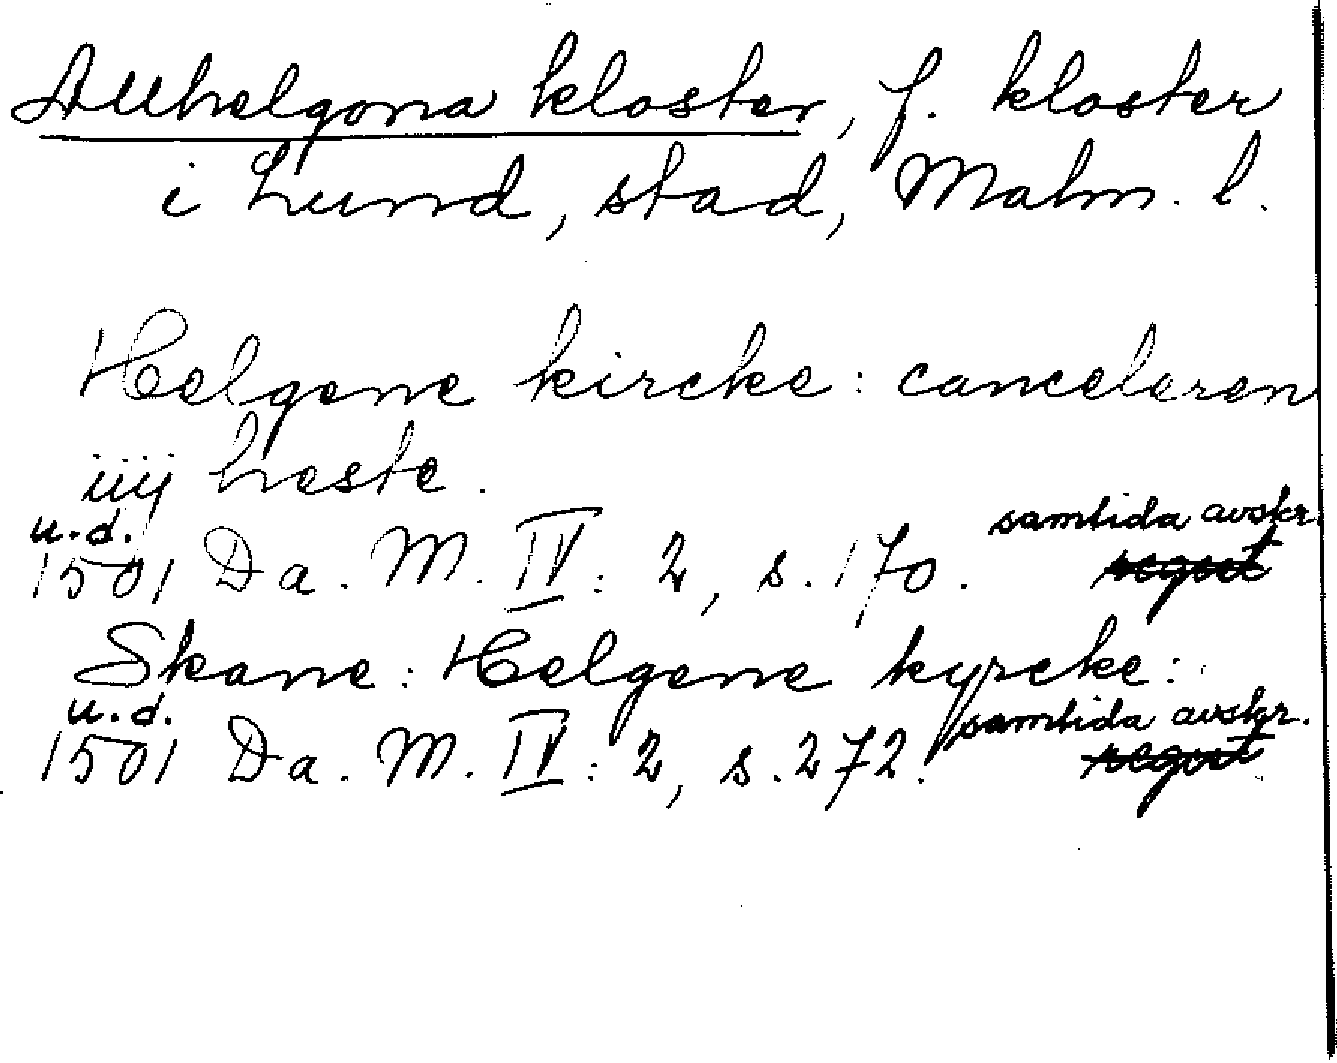 Allhelgona kloster, f. kloster
i Lund, stad, Malm. l.
Helgene kircke: canceleren
iiij heste.
u.d. samtida avskr.
1501 Da. M. IV: 2, s. 170.
Skane: Helgene kyrcke:
u.d. samtida avskr.
1501 Da. M. IV: 2, s. 272.